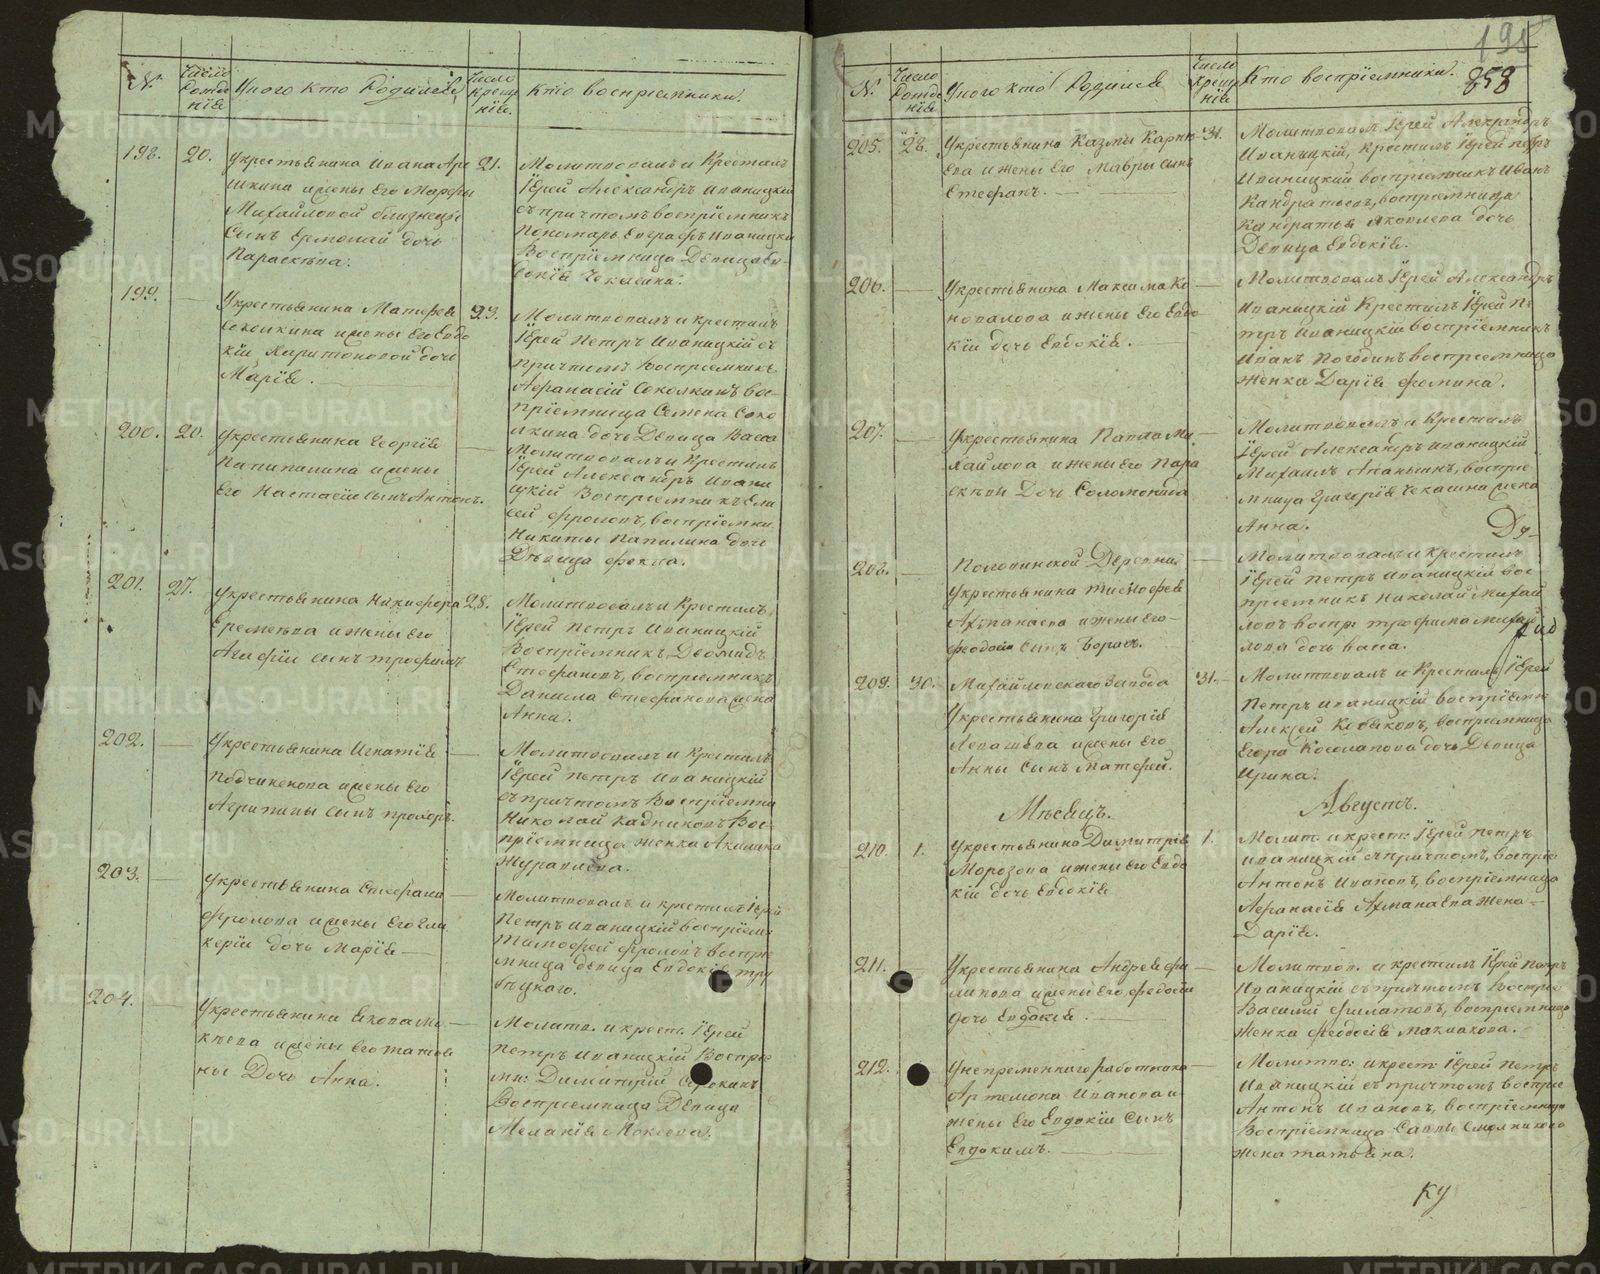 №.
Число Рожде нія
Уного кто Родился
Число Креще нія.
Кто воспріемники.
198.
20.
Укрестьянина Ивана
и жены Его Марфы
Михайловой близнецы
Сынъ Ермолай дочь
Параскева.
21.
Молитвовалъ и Крестилъ
Іерей Александръ Иваницкій
съ причтомъ воспріемникъ
Пономарь Евграфъ Иваницкій
Воспріемница Девица
199.
Укрестьянина Матфея
Соколкина и жены Его Евдо
кіи Харитоновой дочь
Марія.
23.
Молитвовалъ и крестилъ
Іерей Петръ Иваницкій съ
причтомъ Воспріемникъ
Афанасій Соколкинъ вос-
пріемница Семена Соко
лкина дочь Девица Васса
200.
20.
Укрестьянина Георгія
и жены
Его Настасіи сынъ Антонъ.
Молитвовалъ и Крестилъ
Іерей Александръ Ивани
цкій Воспріемникъ Ели
сей Фроловъ, воспріемни
Никиты дочь
Девица Фекла.
201.
27.
Укрестьянина Никифора
Еремеева и жены Его
Агафіи сынъ Трофимъ
28.
Молитвовалъ и Крестилъ
Іерей Петръ Иваницкій
Воспріемникъ Діомидъ
Стефановъ, воспріемникъ
Данила Стефанова жена
Анна.
202.
Укрестьянина Игнатія
и жены Его
Агрипины сынъ Прохоръ.
Молитвовалъ и Крестилъ
Іерей Петръ Иваницкій
съ причтомъ Воспріемни
Николай Кадниковъ Вос-
пріемница женка Акилина
Журавлева.
203.
Укрестьянина Стефана
Фролова и жены Его Гли
керіи дочь Марія
Молитвовалъ и крестилъ Іерей
Петръ Иваницкій воспріем:
Тимофей Фроловъ воспріе
мница девица Евдокія
204.
Укрестьянина Якова Мо
кеева и жены Его Татья
ны Дочь Анна.
Молитв. и крест. Іерей
Петръ Иваницкій Воспріе
мн: Димитрій
Воспріемница Девица
Меланія Мокеева.
195
858
№.
Число Рожде нія
Уного кто Родился
Число Креще нія
Кто воспріемники.
205.
28.
Укрестьянина Казмы Карпо
ва и жены Его Мавры сынъ
Стефанъ.
31.
Молитвовалъ Іерей Александръ
Иваницкій, Крестилъ Іерей Петръ
Иваницкій воспріемникъ Иванъ
Кандратьевъ, воспріемница
Кандратья Яковлева дочь
Девица Евдокія.
206.
Укрестьянина Максима Ко
новалова и жены Его Евдо
кіи дочь Евдокія.
Молитвовалъ Іерей Александръ
Иваницкій Крестилъ Іерей Пе
тръ Иваницкій воспріемникъ
Иванъ Погодинъ воспріемница
женка Дарія Фомина.
207.
Укрестьянина Павла Ми
хайлова и жены Его Пара
скевы Дочь Соломонида
Молитвовалъ и Крестилъ
Іерей Александръ Иваницкій
Михаилъ Ананьинъ, воспріе
мница Григорія Чекасина жена
Анна.
Ду-
208.
Половинской Деревни
Укрестьянина Тимофея
Афанасева и жены Его
Феодосіи Сынъ Борисъ.
Молитвовалъ и крестилъ
Іерей Петръ Иваницкій вос
пріемникъ Николай Михай
ловъ воспр: Трофима Михай
лова дочь Васа.
209.
30.
Михайловскаго Завода
Укрестьянина Григорія
и жены Его
Анны Сынъ Матфей.
31.
Молитвовалъ и Крестилъ Іерей
Петръ Иваницкій воспріемн:
Алексей Кобяковъ, воспріемница
Егора Косолапова дочь Девица
Ирина.
Месяцъ.
Августъ.
210.
1.
Укрестьянина Димитрія
Морозова и жены Его Евдо
кіи дочь Евдокія
1.
Молит. и крест: Іерей Петръ
Иваницкій съ причтомъ, воспріе
Антонъ Ивановъ, воспріемница
Афанасія Афанасева жена
Дарія.
211.
Укрестьянина Андрея Фи
липова и жены Его Федосіи
дочь Евдокія.
Молитвов. и крестилъ Іерей Петръ
Иваницкій съ причтомъ Воспріе
Василій Филатовъ, воспріемница
женка Феодосія Маклакова.
212.
Унепременнаго работника
Артемона Иванова и
жены Его Евдокіи Сынъ
Евдокимъ.
Молитво: и крест: Іерей Петръ
Иваницкій съ причтомъ воспріе
Антонъ Ивановъ, воспріемница
Воспріемница Савы
жена Татьяна.
Ку